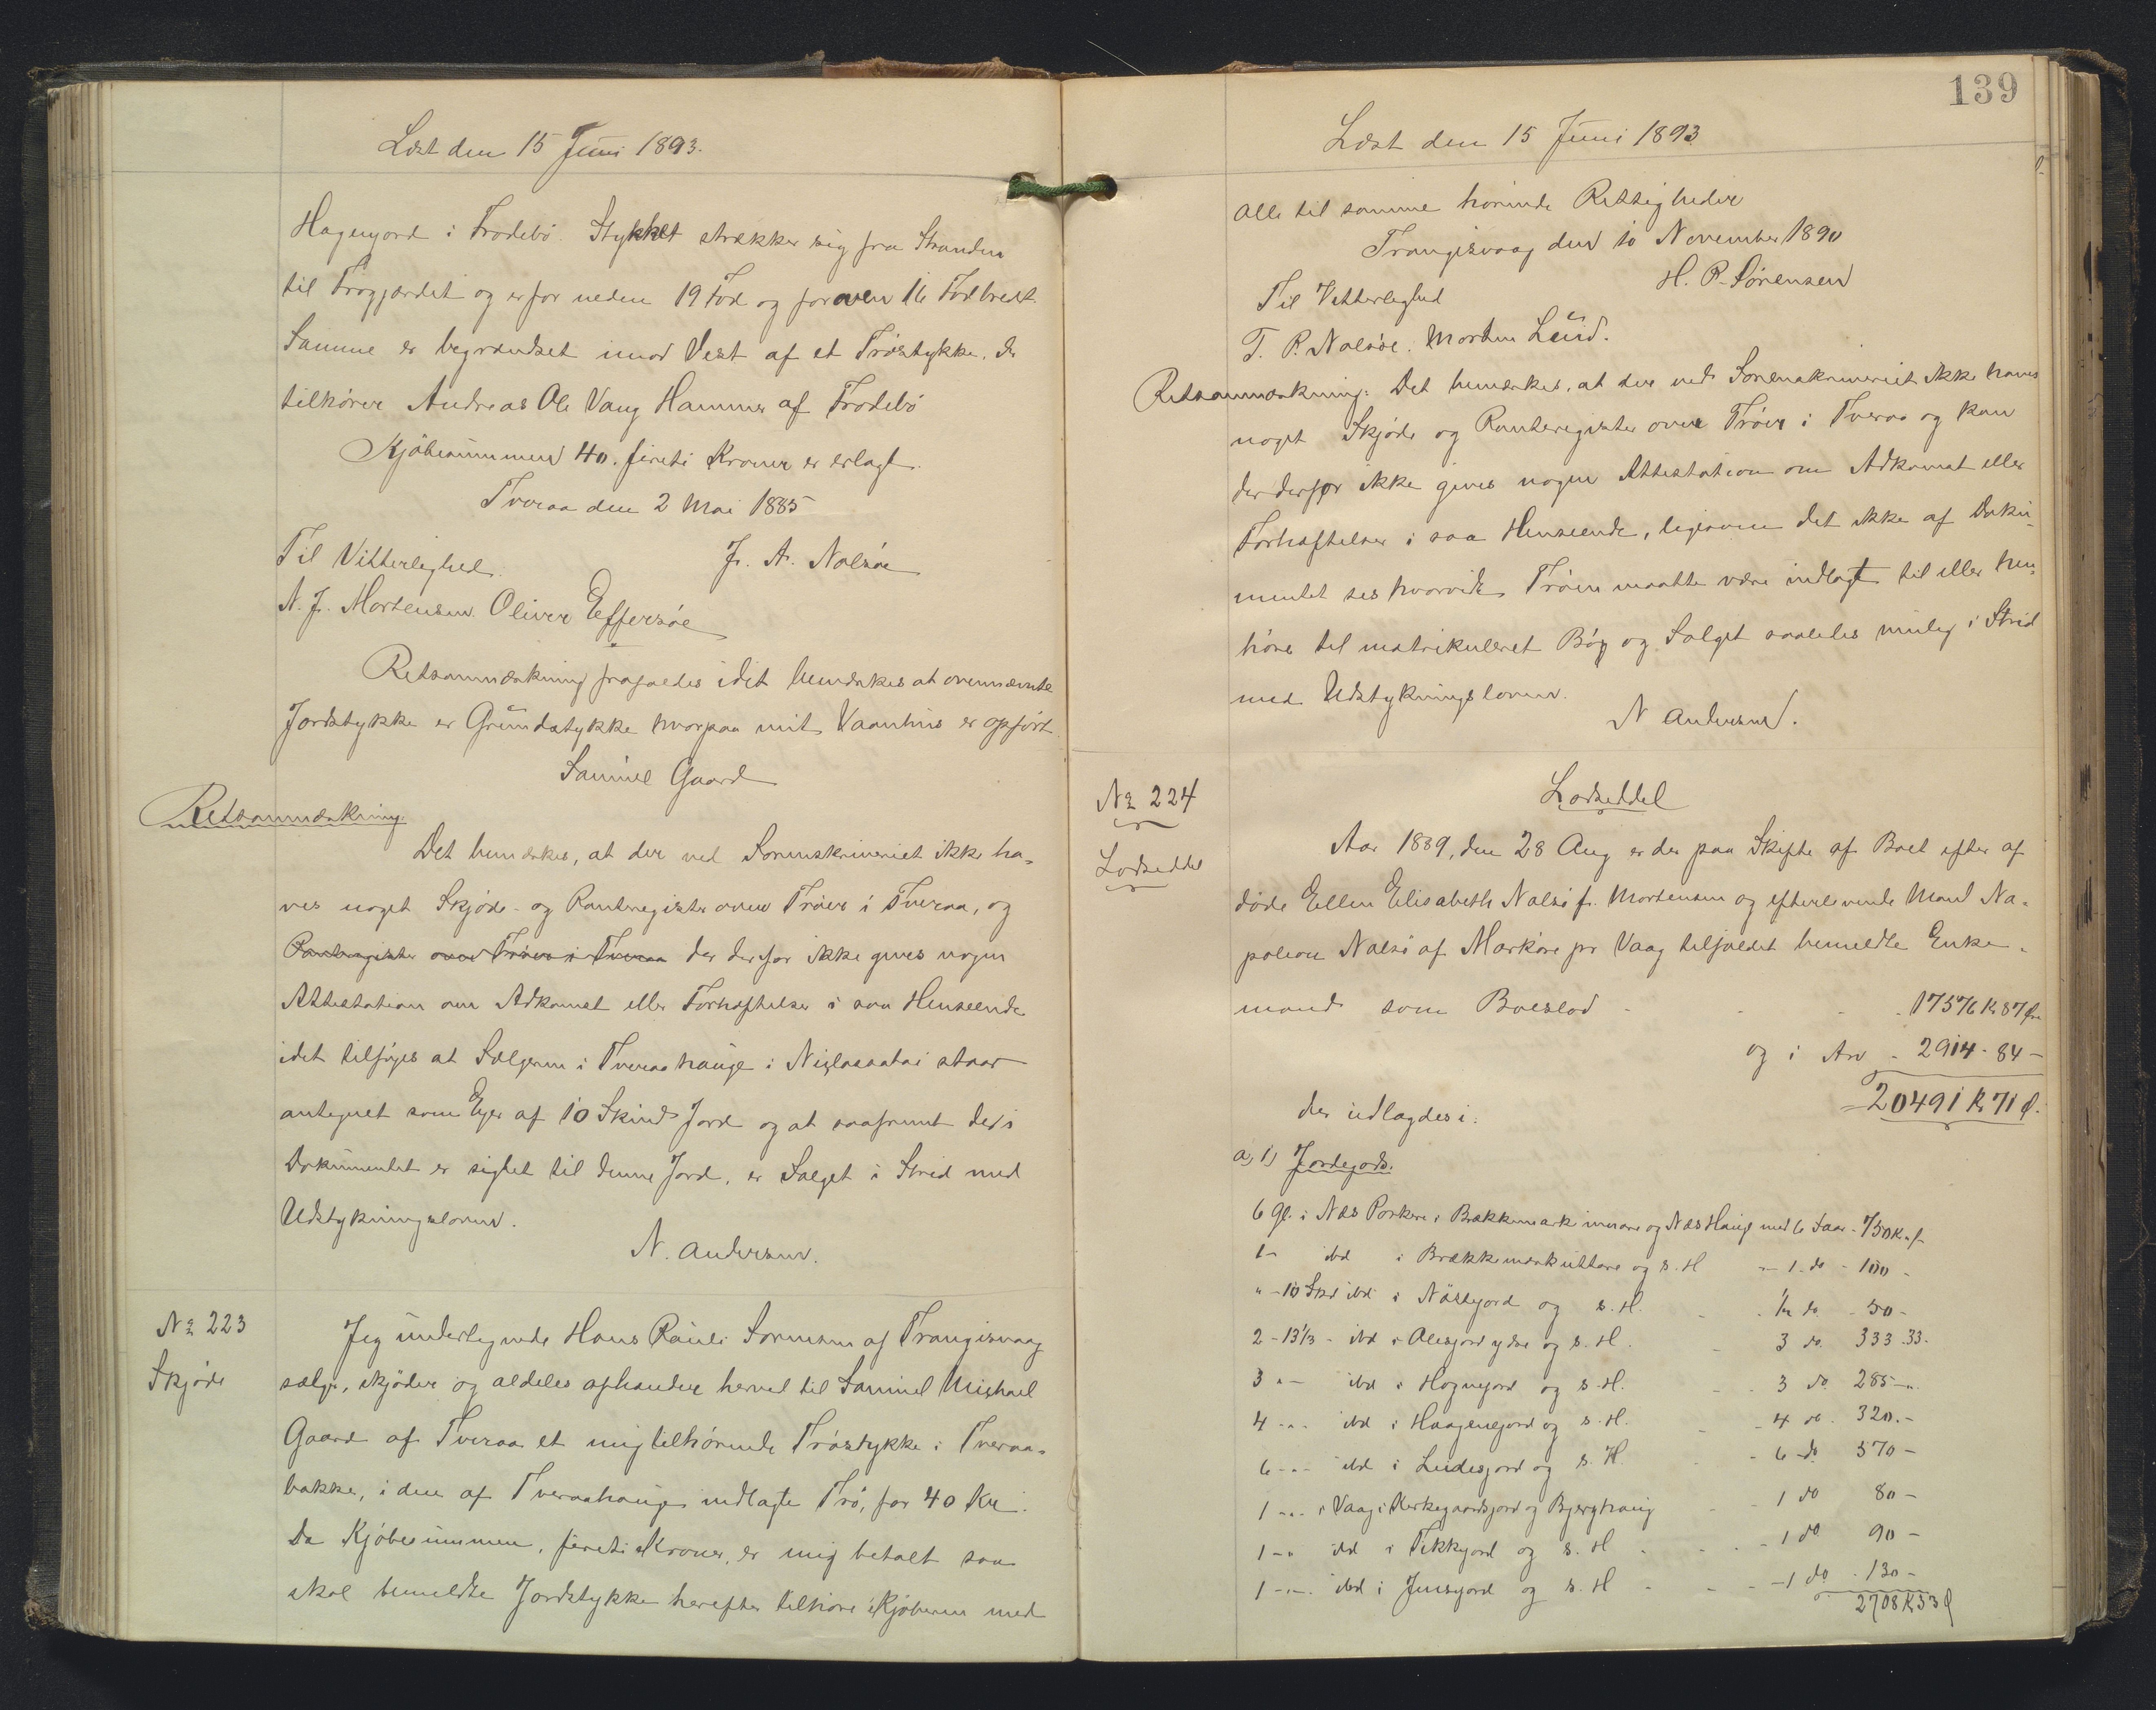 Læst den 15 Juni 1893.
Hagengord i Frodebö. Stykket strækker sig fra Stranden
til Trøgjærdet og er for neden 19 Fod og foroven 16 Fod bredt.
Samme er begrændset imod Vest af et Tröstykke, der
tilhörer Andreas Ole Vang Hammer af Frodebö
Kjöbesummen 40. fireti Kroner er erlagt.
Tveraa den 2 Mai 1885
Til Vitterlighed. J. A. Nolsøe
N. J. Mortensen. Oliver Effersøe
Retsanmærkning frafaldes idet bemærkes at ovennævnte
Jordstykke er Grundstykke hvorpaa mit Vaanhus er opfört
Samuel Gaard
Retsanmærkning.
Det bemærkes, at der ved Sorenskriveriet ikke ha-
ves noget Skjöde- og Panteregister over Tröer i Tveraa, og
Panteregister over Tröer i Tveraa der derfor ikke gives nogen
Attestation om Adkomst eller Forhæftelser i saa Henseende
idet tilföjes at Sælgeren i Tveraa hauge i Niglassataï staar
antegnet som Ejer af 10 Skind Jord og at saafremt der i
Dokumentet er sigtet til denne Jord, er Salget i Strid med
Udstykningsloven.
N. Andersen.
№ 223
Skjöde
Jeg underlegnede Hans Pauli Sørensen af Trangisvaag
sælger, skjöder og aldeles afhænder herved til Samuel Michael
Gaard af Tveraa et mig tilhörende Tröstykke i Tveraa-
bakke, i den af Tveraahauge indlagte Trö, for 40 Kr.
Da Kjöbesummen, fireti Kroner, er mig betalt saa
skal bemeldte Jordstykke herefter tilhöre Kjöberen med
139
Læst den 15 Juni 1893
alle til samme hörende Rettigheder
Trangisvaag den 10 November 1890
H. P. Sörensen
Til Vitterlighed
T. P. Nolsöe. Morten Lund.
Retsanmærkning: Det bemærkes, at der ved Sorenskriveriet ikke haves
noget Skjöde og Panteregister over Tröer i Tveraa og kan
der derfor ikke gives nogen Attestation om Adkomst eller
Forhæftelser i saa Henseende, ligesom det ikke af Doku-
mentet ses hvorvidt Tröen maatte være indlagt til eller hen-
höre til matrikuleret Böj og Salget saaledes mulig i Strid
med Udstykningsloven.
N Andersen.
№ 224
Lodseddel
Lodseddel
Aar 1889, den 28 Aug er der paa Skifte af Boet efter af
döde Ellen Elisabeth Nalsö f. Mortensen og efterlevende Mand Na-
poleon Nalsö af Marköre pr Vaag tilfaldet bemeldte Enke-
mand som Boeslod - - - - 17576 Kr 87 Øre
og i Arv - 2914 - 84 -
= 20491 Kr 71 Ø.
der udlagdes i:
a, 1) Jordegods.
6 Gl. i Næs Porkere i Brekkumark innare og Næs Haug med 6 Faar - 750 Kr. "-
1 - ibd i Brekkemark uttare og s. H - - 1 do - 100 -
" - 10 Skd ibd i Nöstegord og s. H. - - ½ do - 50 -
2 - 13⅓ - ibd i Olesjord ydre og s. H. - 3 do. 333.33.
3 " - ibd i Hognejord og s. H. - - 3 do 285 - ".
4 - " - ibd i Haagenejord og s. H. - 4 do. 320. -
6 - " - ibd i Leidesjord og s. H. - - 6 do 570 -
1 - " - i Vaag i Kirkegaardsjord og Bjerghaug - - 1 do 80 -
1 - " ibd i Tekkjord og s. H - - - 1 do 90 -
1 - " - ibd i Jensjord og s. H - - - 1 do - 130 -
2708 Kr 33 Ø